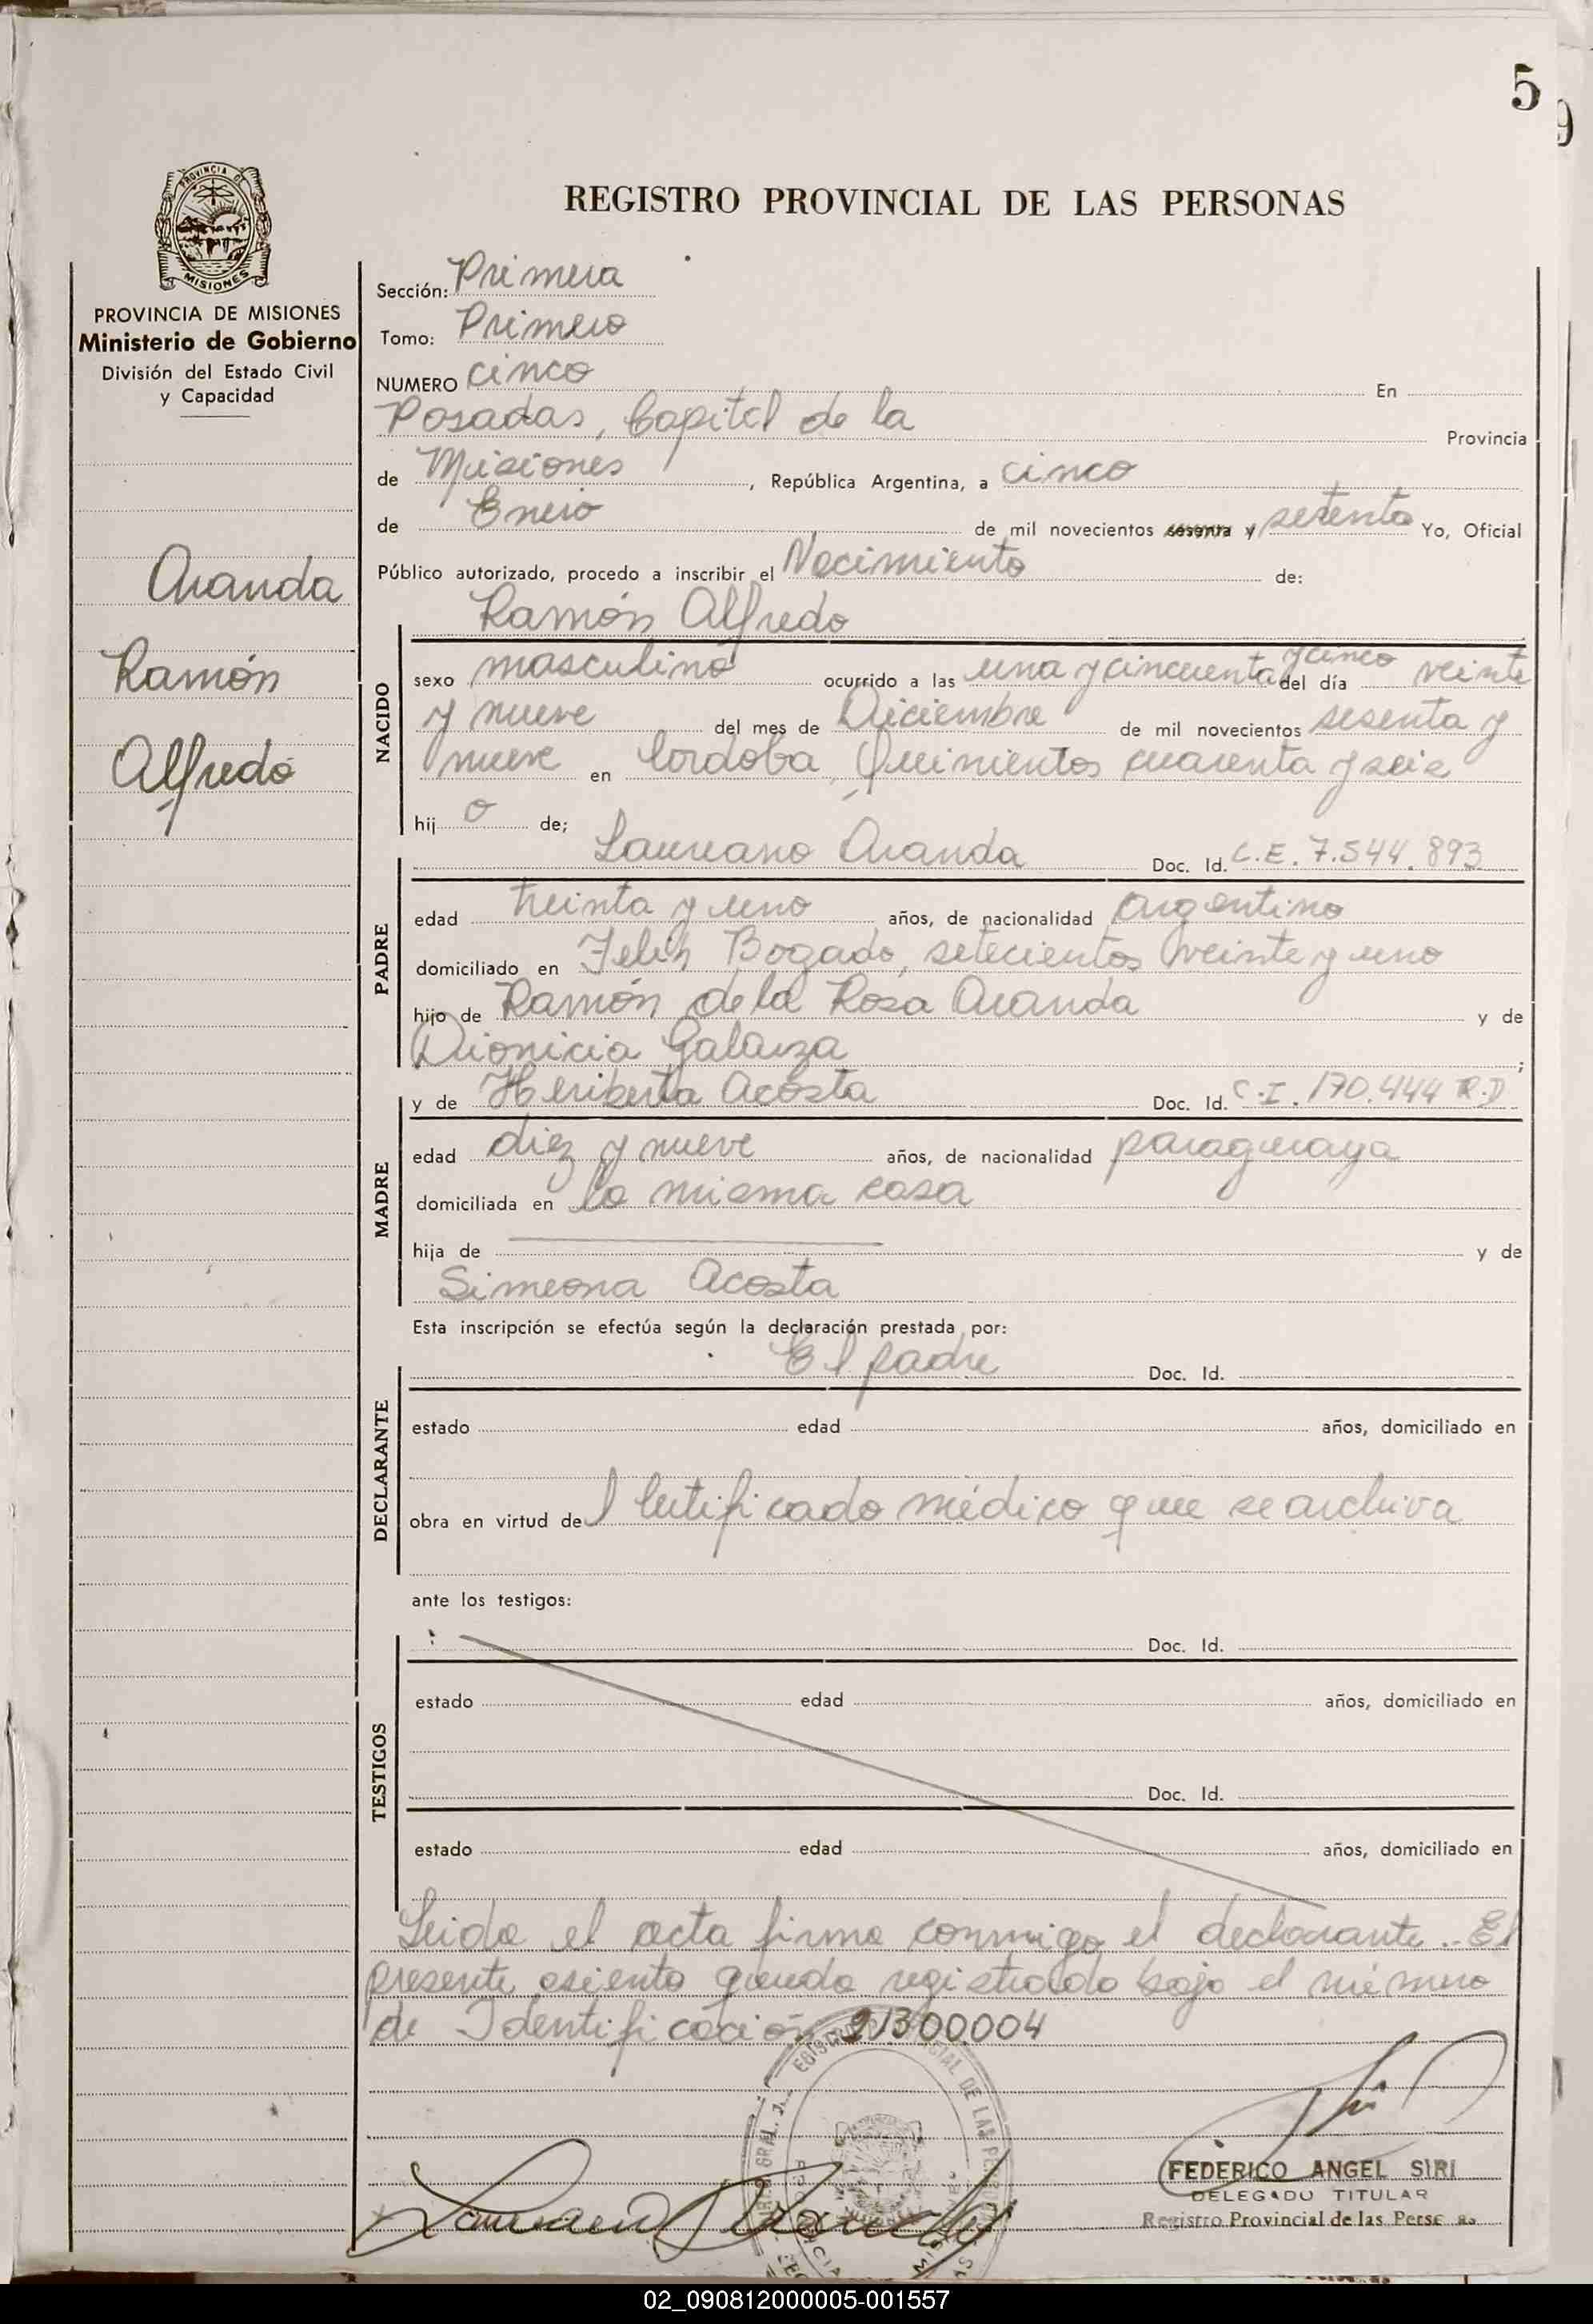 5
9
PROVINCIA DE
MISIONES
PROVINCIA DE MISIONES
Ministerio de Gobierno
División del Estado Civil
y Capacidad
Aranda
Ramón
Alfredo
REGISTRO PROVINCIAL DE LAS PERSONAS
Sección: Primera
Tomo: Primero
NUMERO cinco En
Posadas, Capital de la Provincia
de Misiones, República Argentina, a cinco
de Enero de mil novecientos sesenta y setenta Yo, Oficial
Público autorizado, procedo a inscribir el Nacimiento de:
Ramón Alfredo
NACIDO
sexo masculino ocurrido a las una y cincuenta y cinco del día veinte
y nueve del mes de Diciembre de mil novecientos sesenta y
nueve en Cordoba, Quinientos cuarenta y seis
hijo de;
Laureano Aranda Doc. Id. L.E. 7.544.893
PADRE
edad treinta y uno años, de nacionalidad argentino
domiciliado en Felix Bogado, setecientos veinte y uno
hijo de Ramón de la Rosa Aranda y de
Dionicia Galarza ;
y de Heriberta Acosta Doc. Id. C.I. 170.444 R.P
MADRE
edad diez y nueve años, de nacionalidad paraguaya
domiciliada en la misma casa
hija de y de
Simeona Acosta
Esta inscripción se efectúa según la declaración prestada por:
El padre Doc. Id.
DECLARANTE
estado edad años, domiciliado en
obra en virtud del Certificado médico que se archiva
ante los testigos:
TESTIGOS
Doc. Id.
estado edad años, domiciliado en
Doc. Id.
estado edad años, domiciliado en
Leida el acta firma conmigo el declarante.. El
presente asiento queda registrado bajo el número
de Identificación 21300004
FEDERICO ANGEL SIRI
DELEGADO TITULAR
Registro Provincial de las Perso as
Laureano Aranda
02_090812000005-001557